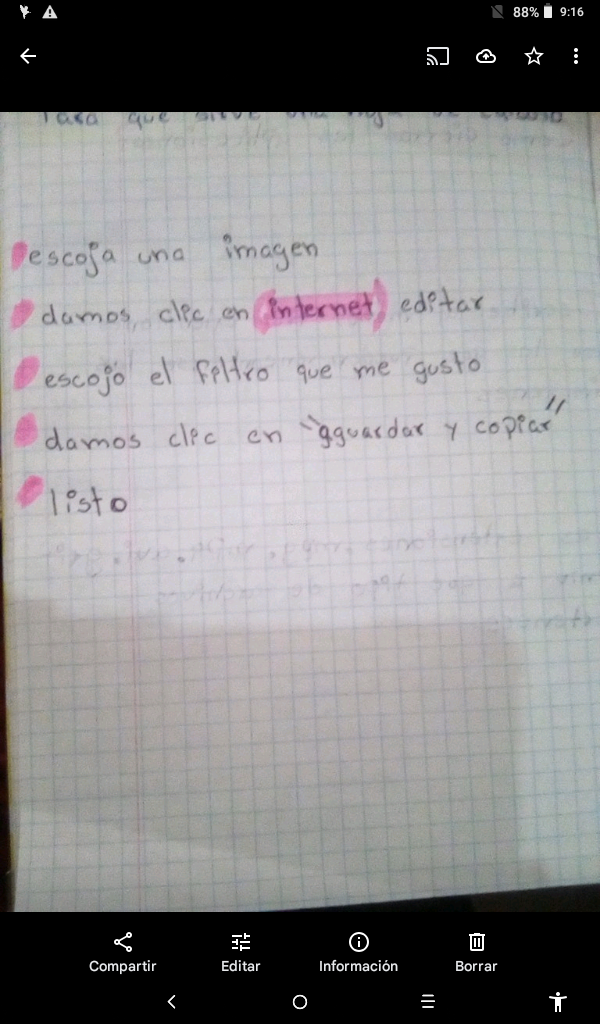 88% 9:16
Para que sirve una hoja de
escoja una imagen
damos clic en (internet) editar
escojo el filtro que me gusto
damos clic en "gguardar y copiar"
listo
Compartir Editar Información Borrar